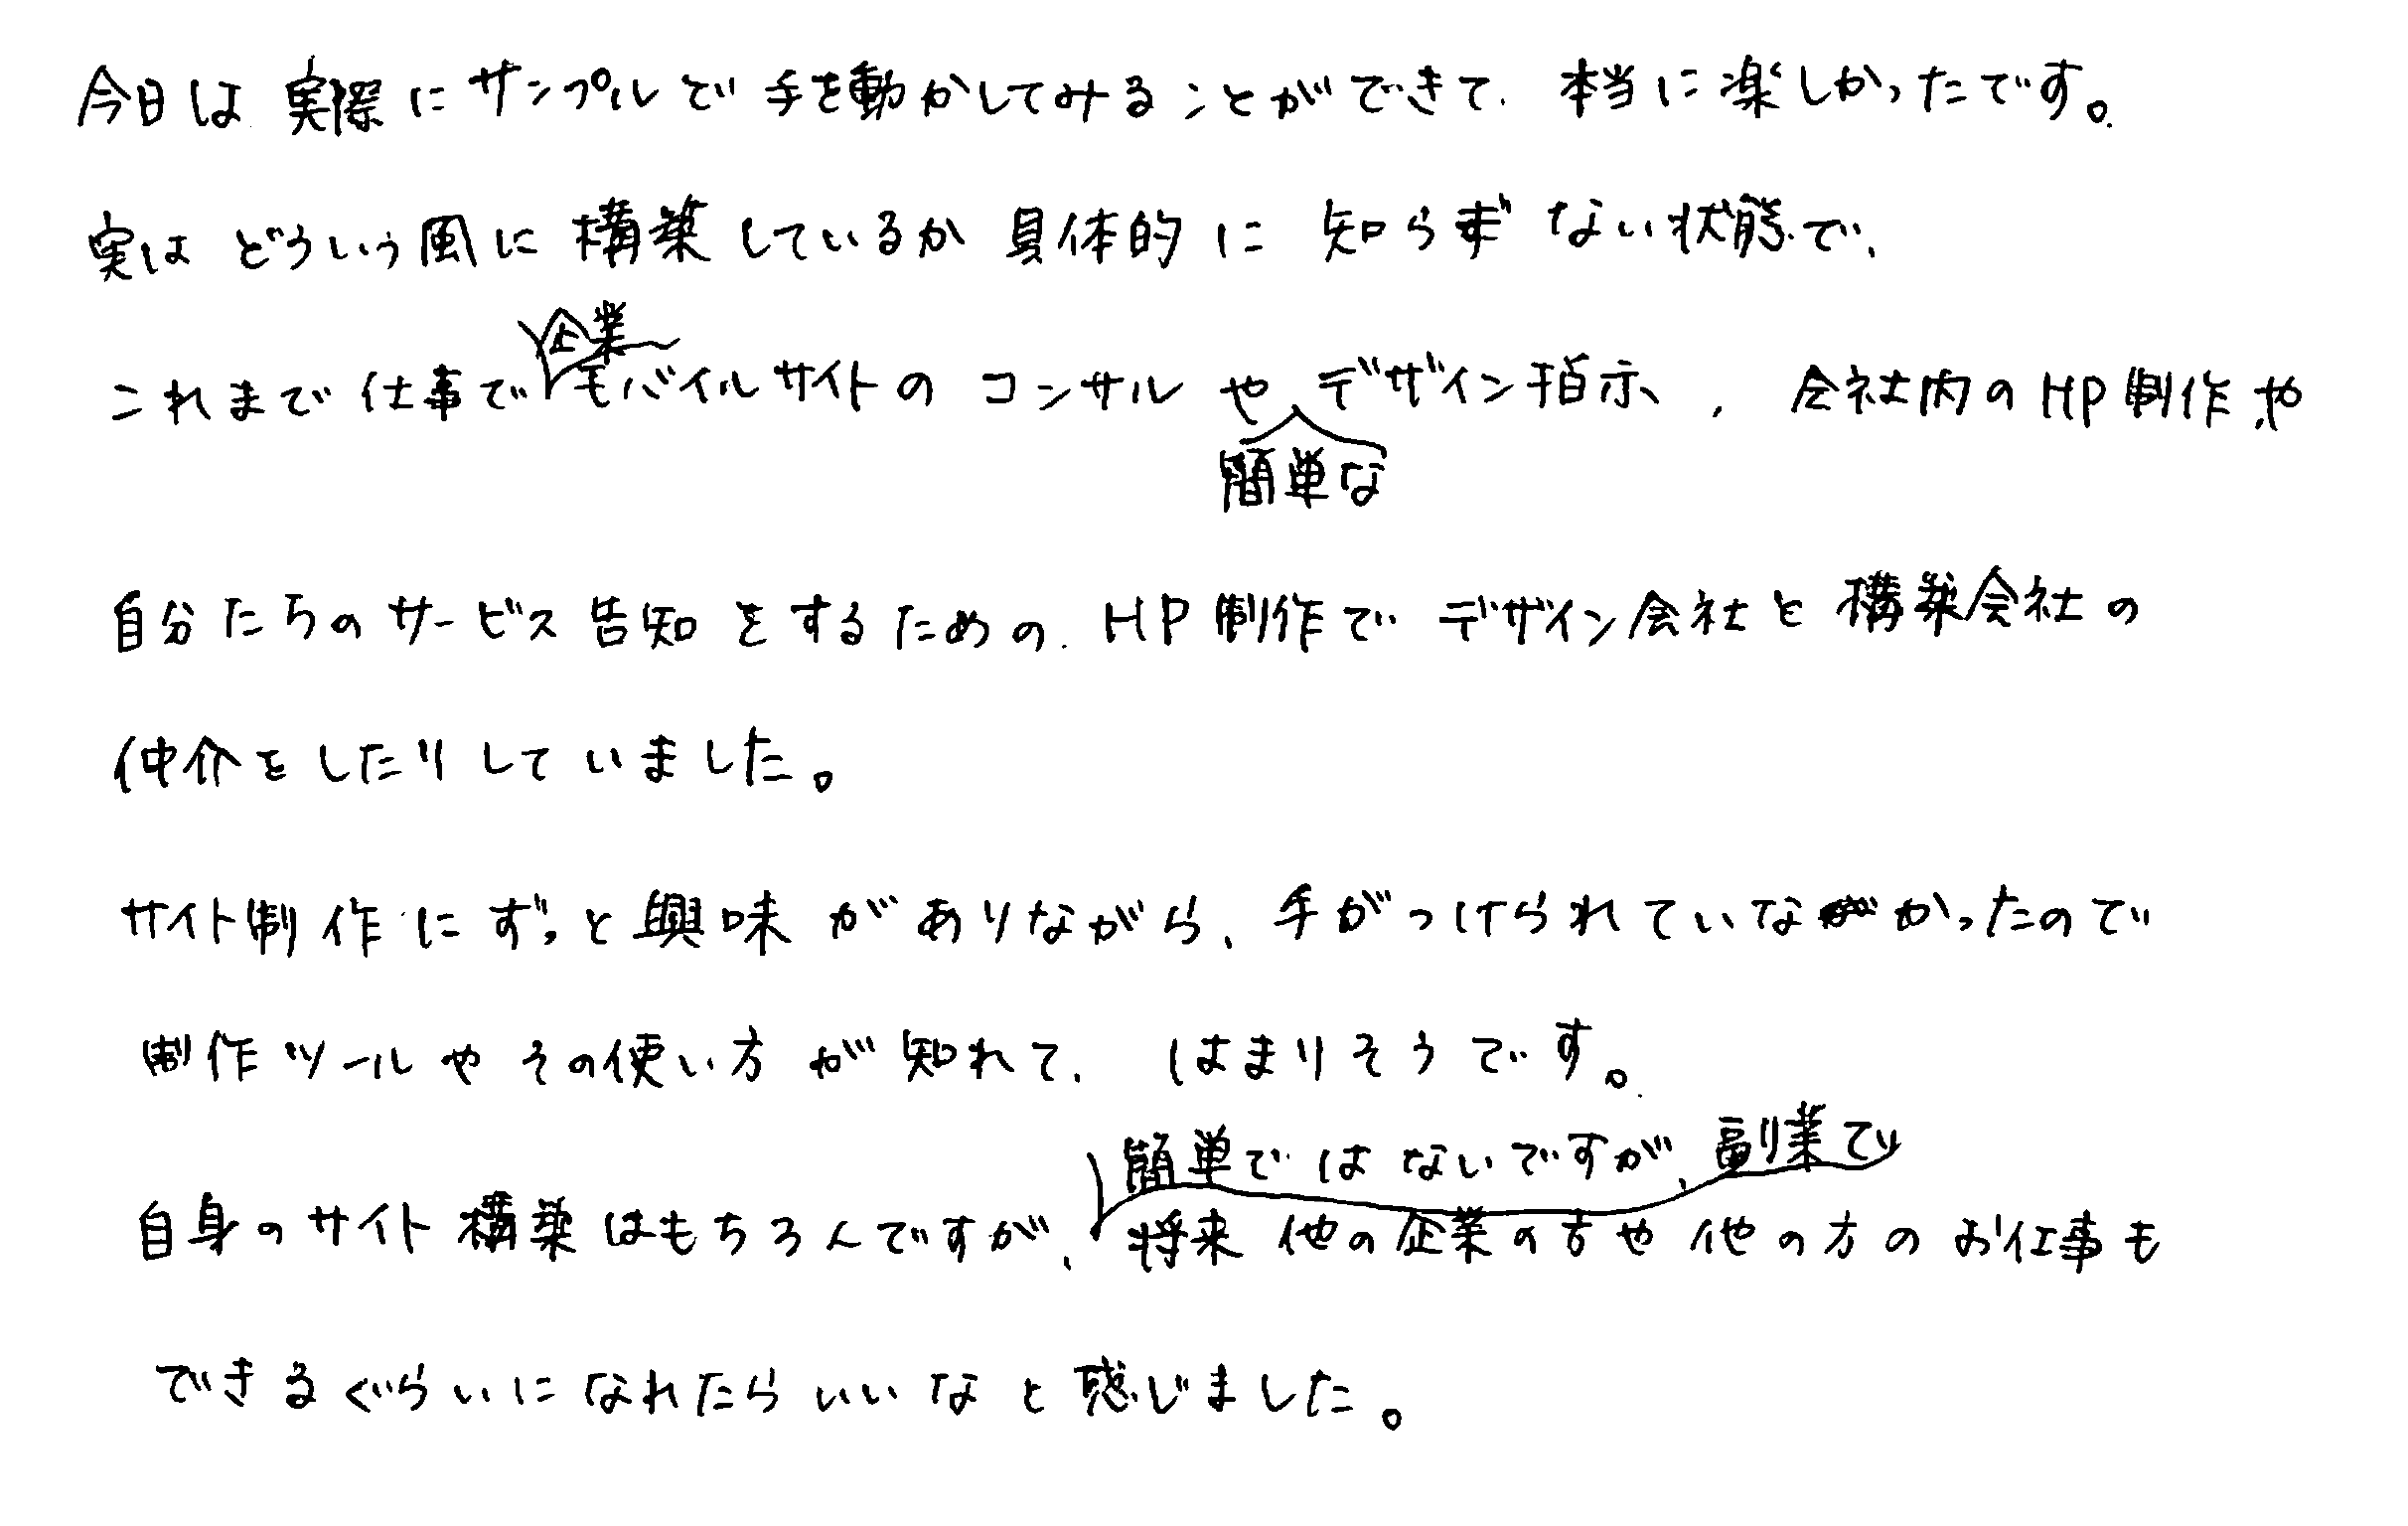 今日は実際にサンプルで手を動かしてみることができて、本当に楽しかったです。
実はどういう風に構築しているか具体的に知らずない状態で、
企業
これまで仕事でモバイルサイトのコンサルやデザイン指示、会社内のHP制作や
簡単な
自分たちのサービス告知をするための、HP制作でデザイン会社と構築会社の
仲介をしたりしていました。
サイト制作にずっと興味がありながら、手がつけられていなかったので
制作ツールやその使い方が知れて、はまりそうです。
簡単ではないですが、副業で
自身のサイト構築はもちろんですが、将来他の企業の方や他の方のお仕事も
できるぐらいになれたらいいなと感じました。